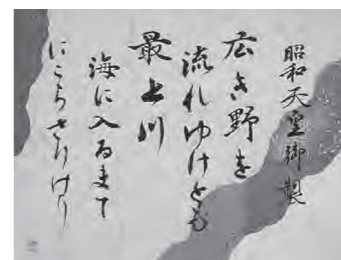 昭和天皇御製
広き野を
流れゆけとも
最上川
海に入るまて
にこらさりけり